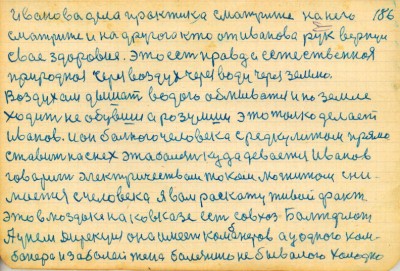 Иванова одна практика сматрите на него 186
сматрите и на другога кто от иванова рук вернул
свае здоровия. Это ест правда естественная
природноя через воздух через воду через землю.
Воздухам дышат водою обмивается и по земле
ходит не обувши а розумши это только делает
Иванов. И он болного человека с редкулитом прямо
ставит на снех эта болезн куда девается Иванов
говарит электричествам током магнитом сни-
мается с человека Я вам раскажу живой факт
это в моздоки на ковказе ест совхоз
Директур она имеет комбанеров а у одного ком-
банера и заболой жена болезню не бывалою холодно